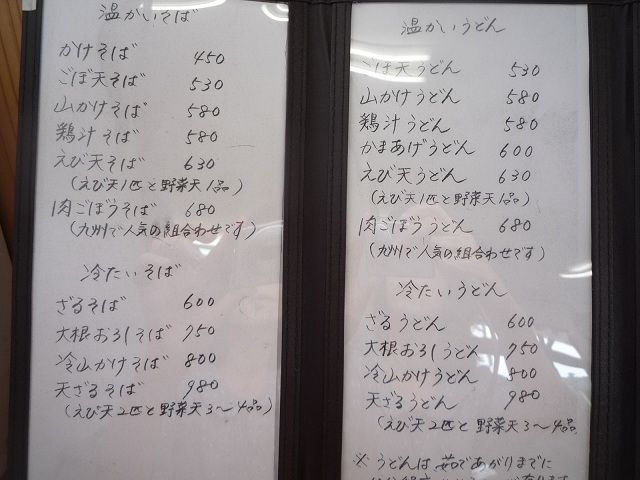 温かいそば
かけそば 450
ごぼ天そば 530
山かけそば 580
鶏汁そば 580
えび天そば 630
(えび天1匹と野菜天1品)
肉ごぼうそば 680
(九州で人気の組合わせです)
冷たいそば
ざるそば 600
大根おろしそば 750
冷山かけそば 800
天ざるそば 980
(えび天2匹と野菜天3〜4品)
温かいうどん
ごぼ天うどん 530
山かけうどん 580
鶏汁うどん 580
かまあげうどん 600
えび天うどん 630
(えび天1匹と野菜天1品)
肉ごぼううどん 680
(九州で人気の組合わせです)
冷たいうどん
ざるうどん 600
大根おろしうどん 750
冷山かけうどん 800
天ざるうどん 980
(えび天2匹と野菜天3〜4品
※うどんは茹であがりまでに